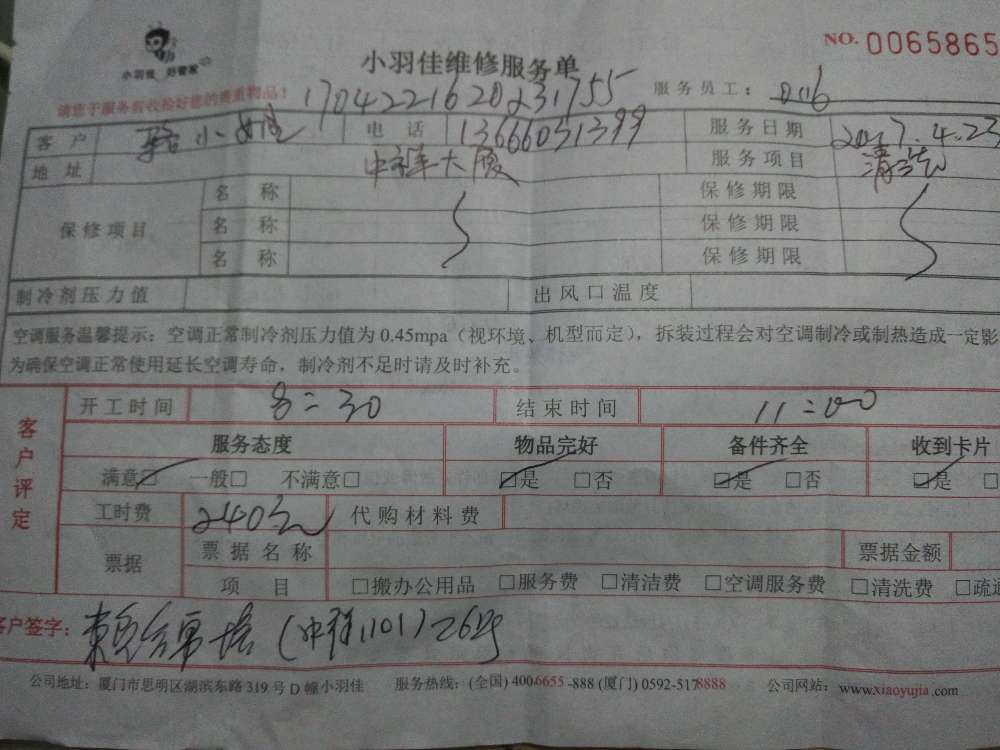 小羽佳 好管家
小羽佳维修服务单
NO. 0065865
请您于服务前收拾好您的贵重物品！
服务员工：
客户 小姐 电话 13666031399 服务日期 2017.4.23
地址 中祥大厦 服务项目 清洗
保修项目 名称 保修期限
名称 保修期限
名称 保修期限
制冷剂压力值 出风口温度
空调服务温馨提示：空调正常制冷剂压力值为0.45mpa（视环境、机型而定），拆装过程会对空调制冷或制热造成一定影
为确保空调正常使用延长空调寿命，制冷剂不足时请及时补充。
客户评定
开工时间 8:30 结束时间 11:00
服务态度 物品完好 备件齐全 收到卡片
满意□ 一般□ 不满意□ □是 □否 □是 □否 □是 □
工时费 240元 代购材料费
票据 票据名称 票据金额
项目 □搬办公用品 □服务费 □清洁费 □空调服务费 □清洗费 □疏通
客户签字： (中祥1101)
公司地址：厦门市思明区湖滨东路319号D幢小羽佳 服务热线：(全国) 4006655-888 (厦门) 0592-5178888 公司网站：www.xiaoyujia.com